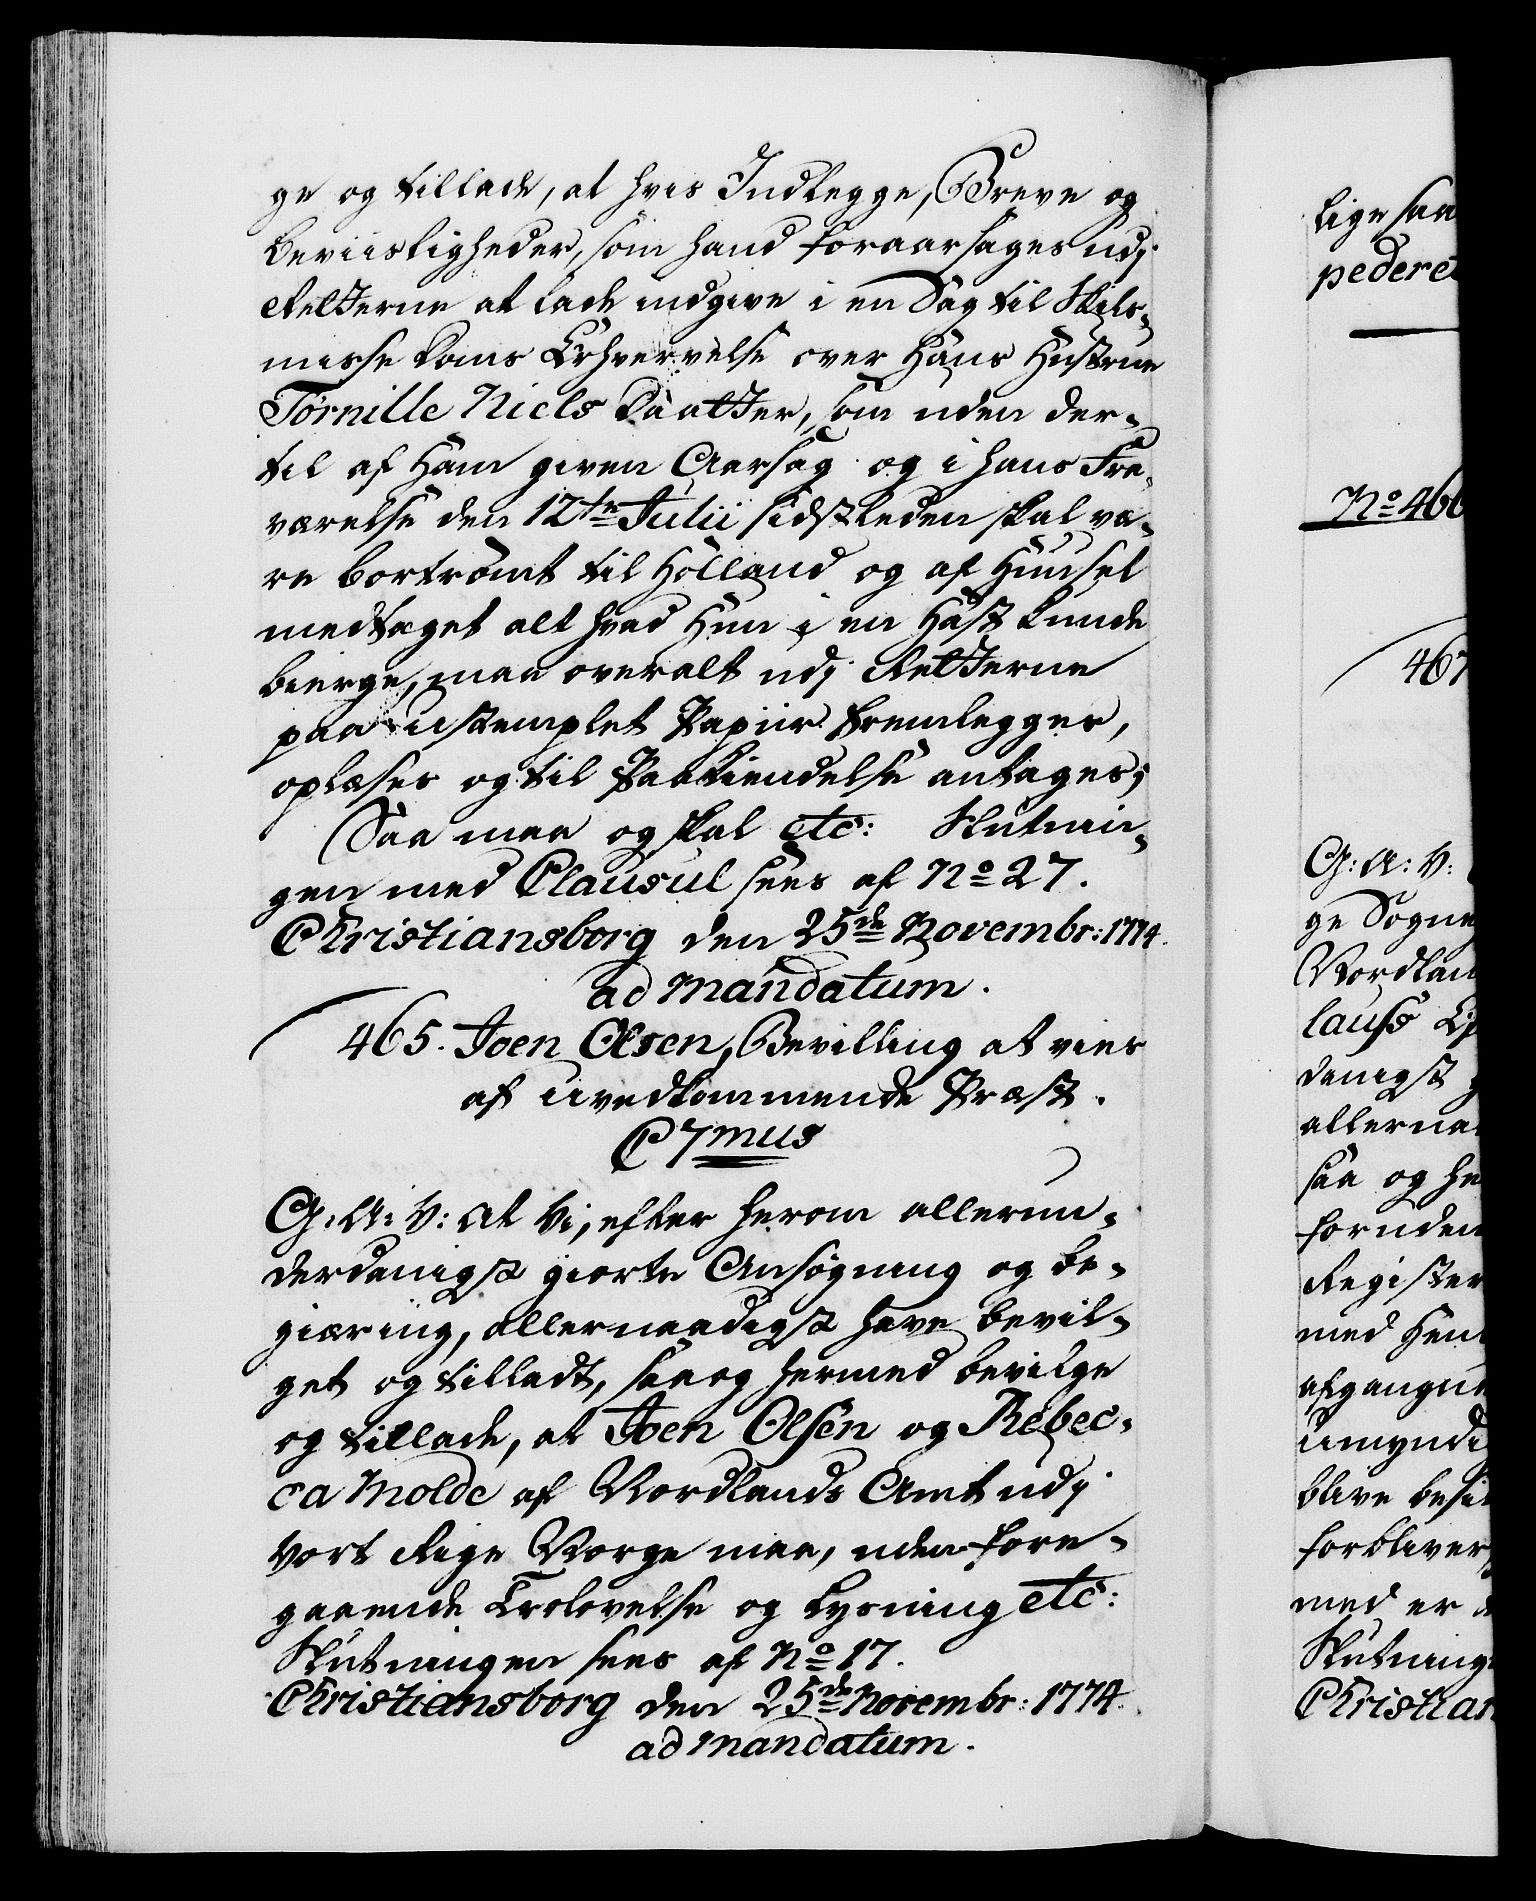 ge og tillade, at hvis Indlegge, Breve og
Beviisligheder, som hand foraarsages udj
Retterne at lade indgive i en Sag til Skils-
misse Doms Erhvervelse over Hans Hustrue
Tørnille Niels Daatter, som uden der-
til af Ham given Aarsag og i hans Fra-
værelse den 12te Julii sidstleden skal væ-
re bortrømt til Holland og af Huuset
medtaget alt hvad Hun i en Hast kunde
bierge, maa overalt udj Retterne
paa ustemplet Papiir fremlegges,
oplæses og til Paakiendelse antages;
Saa maa og skal etc: Slutnin-
gen med Clausul sees af No 27.
Christiansborg den 25de Novembr: 1774.
ad mandatum.
465. Joen Olsen, Bevilling at vies
af uvedkommende Præst.
C 7mus
G: A: V: at Vi, efter herom allerun-
derdanigst giorte Ansøgning og Be-
giæring, allernaadigst have bevil-
get og tilladt, saa og hermed bevilge
og tillade, at Joen Olsen og Rebec-
ca Molde af Nordlands Amt udj
Vort Rige Norge maa, uden fore-
gaaende Trolovelse og Lysning etc:
Slutningen sees af No 17.
Christiansborg den 25de Novembr: 1774.
ad mandatum.
lige saa
pederet
No 466
467
G: A: V:
ge Sogne
Nordlan
lauss
danigst
allernaa
saa og he
foruden
Register
med Hen
afgangne
umyndi
blive besid
forbliver
med er
Slutning
Christian